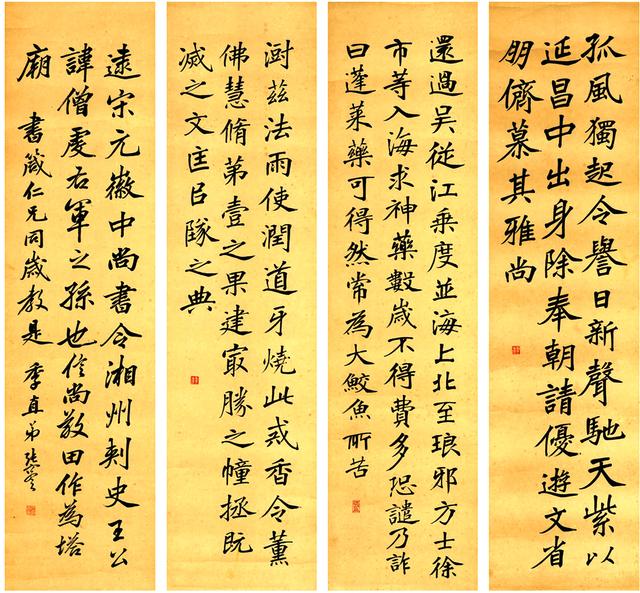 孤風獨起令譽日新聲馳天紫以
延昌中出身除奉朝請優遊文省
朋儕慕其雅尚
還過吴從江乘度並海上北至琅邪方士徐
市等入海求神藥數歲不得費多恐譴乃詐
曰蓬萊藥可得然常為大鮫魚所苦
澍兹法雨使潤道牙燒此戒香令薰
佛慧脩苐壹之果建㝡勝之幢拯既
滅之文匡已隊之典
遠宋元徽中尚書令湘州刺史王公
諱僧虔右軍之孫也信尚敬田作為塔
廟
書箴仁兄同歲教是 季直弟張謇